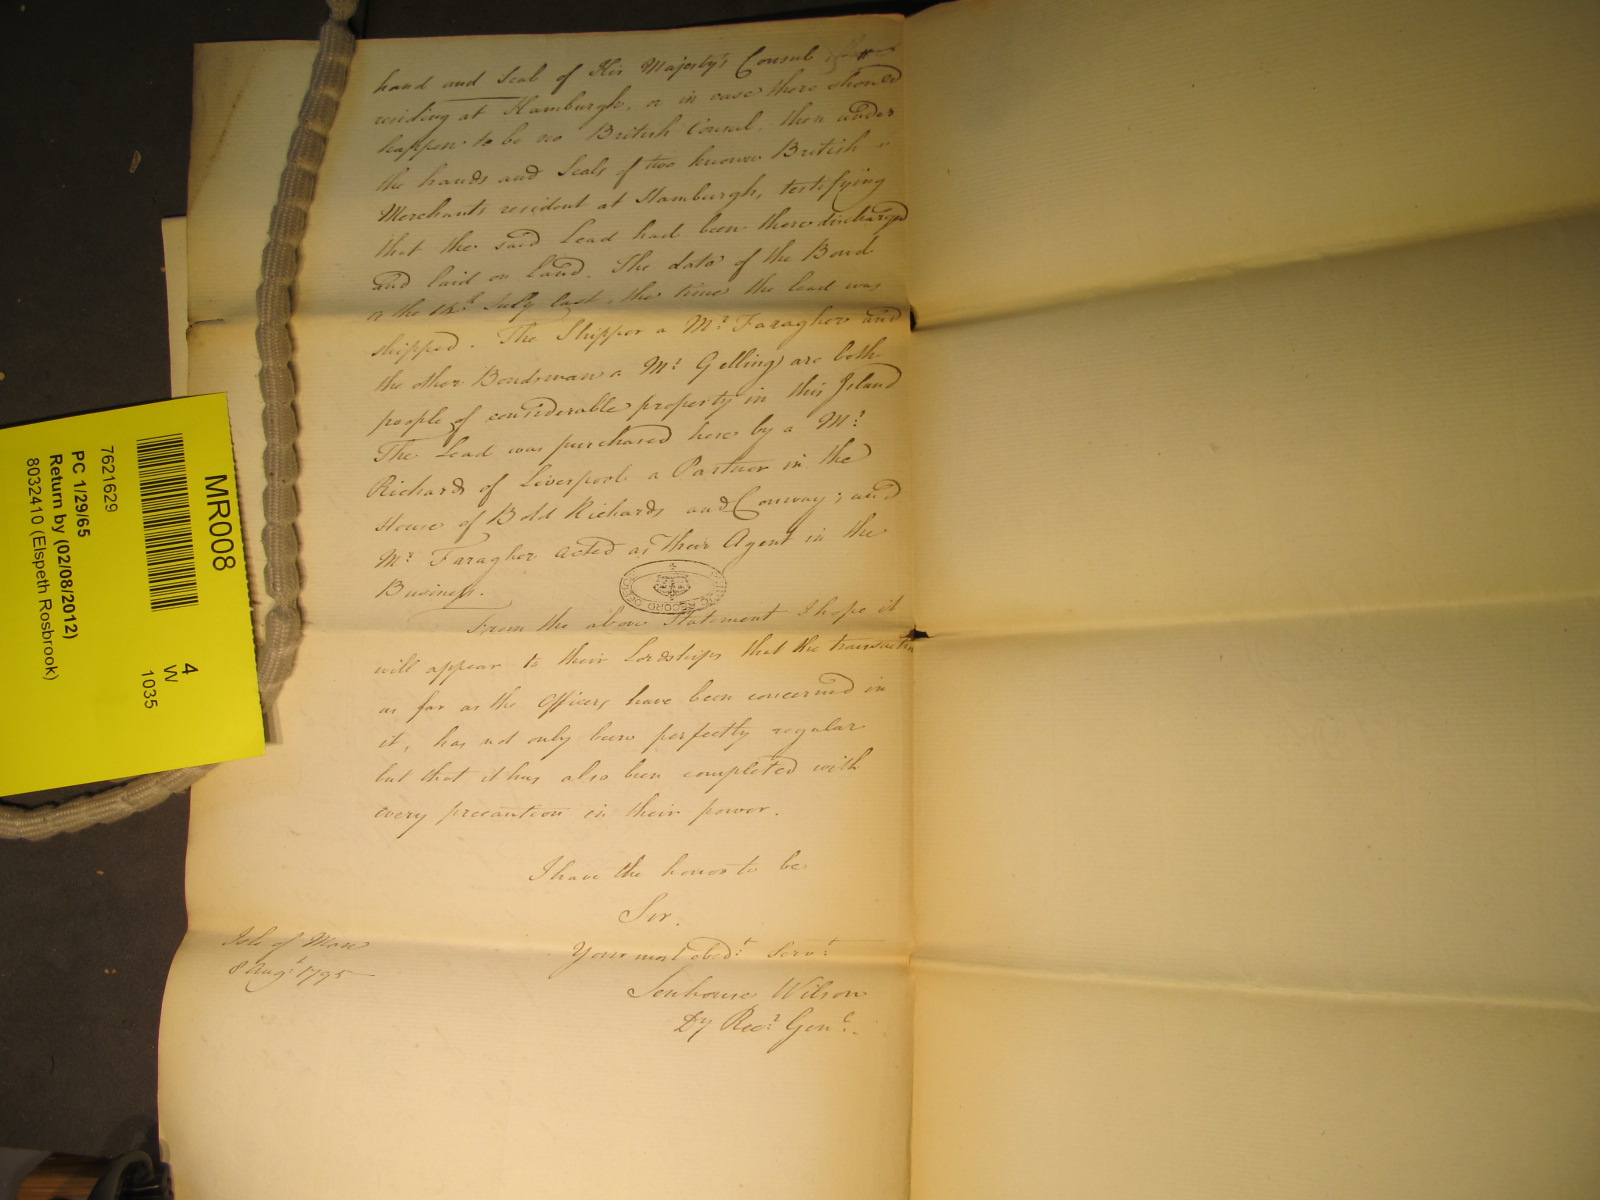 hand and Seal of His Majesty's Consul
residing at Hamburgh, or in case there should
happen to be no British Consul, then under
the hands and Seals of two known British
Merchants resident at Hamburgh, testifying
that the said Lead had been there discharged
and laid on Land. The date of the Bond
is the July last, the time the lead was
shipped. The Shipper a Mr. Faragher and
the other Bondsman a Mr. Gelling are both
people of considerable property in this Island
The Lead was purchased here by a Mr.
Richards of Liverpool a Partner in the
House of Bold Richards and Conway; and
Mr. Faragher acted as their Agent in the
Business.
From the above Statement I hope it
will appear to their Lordships that the transaction
as far as the Officers have been concerned in
it, has not only been perfectly regular
but that it has also been completed with
every precaution in their power.
I have the honor to be
Sir.
Your most obedt. Servt.
Senhouse Wilson
Dy Recr. Genl.
Isle of Man
8 Augt. 1795
PUBLIC RECORD OFFICE
MR008
7621629
PC 1/29/65
Return by (02/08/2012)
8032410 (Elspeth Rosbrook)
4
W
1035